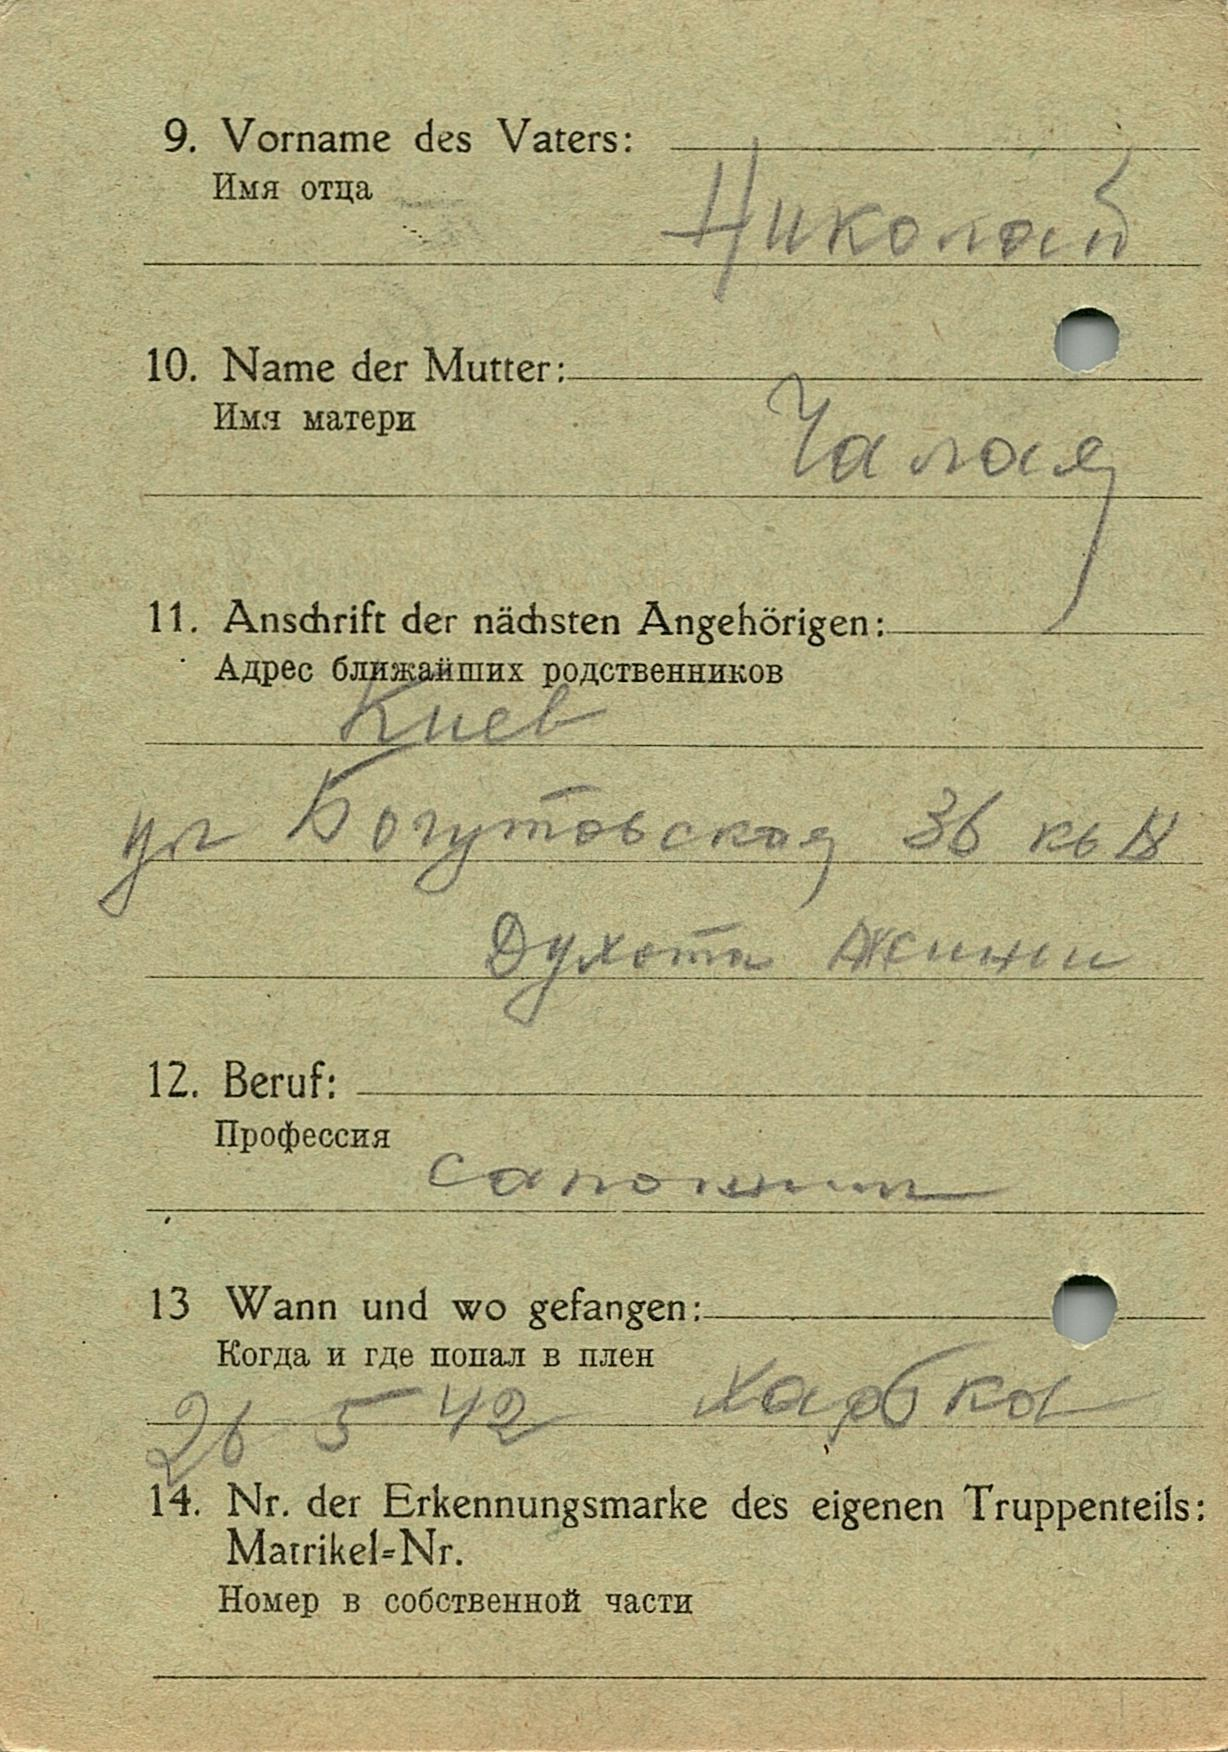 9. Vorname des Vaters:
Имя отца
Николай
10. Name der Mutter:
Имя матери
Чалая
11. Anschrift der nächsten Angehörigen:
Адрес ближайших родственников
Киев
ул Богутовская 36 кв
Духота
12. Beruf:
Профессия
сапожник
13 Wann und wo gefangen:
Когда и где попал в плен
26 5 42
14. Nr. der Erkennungsmarke des eigenen Truppenteils:
Matrikel=Nr.
Номер в собственной части